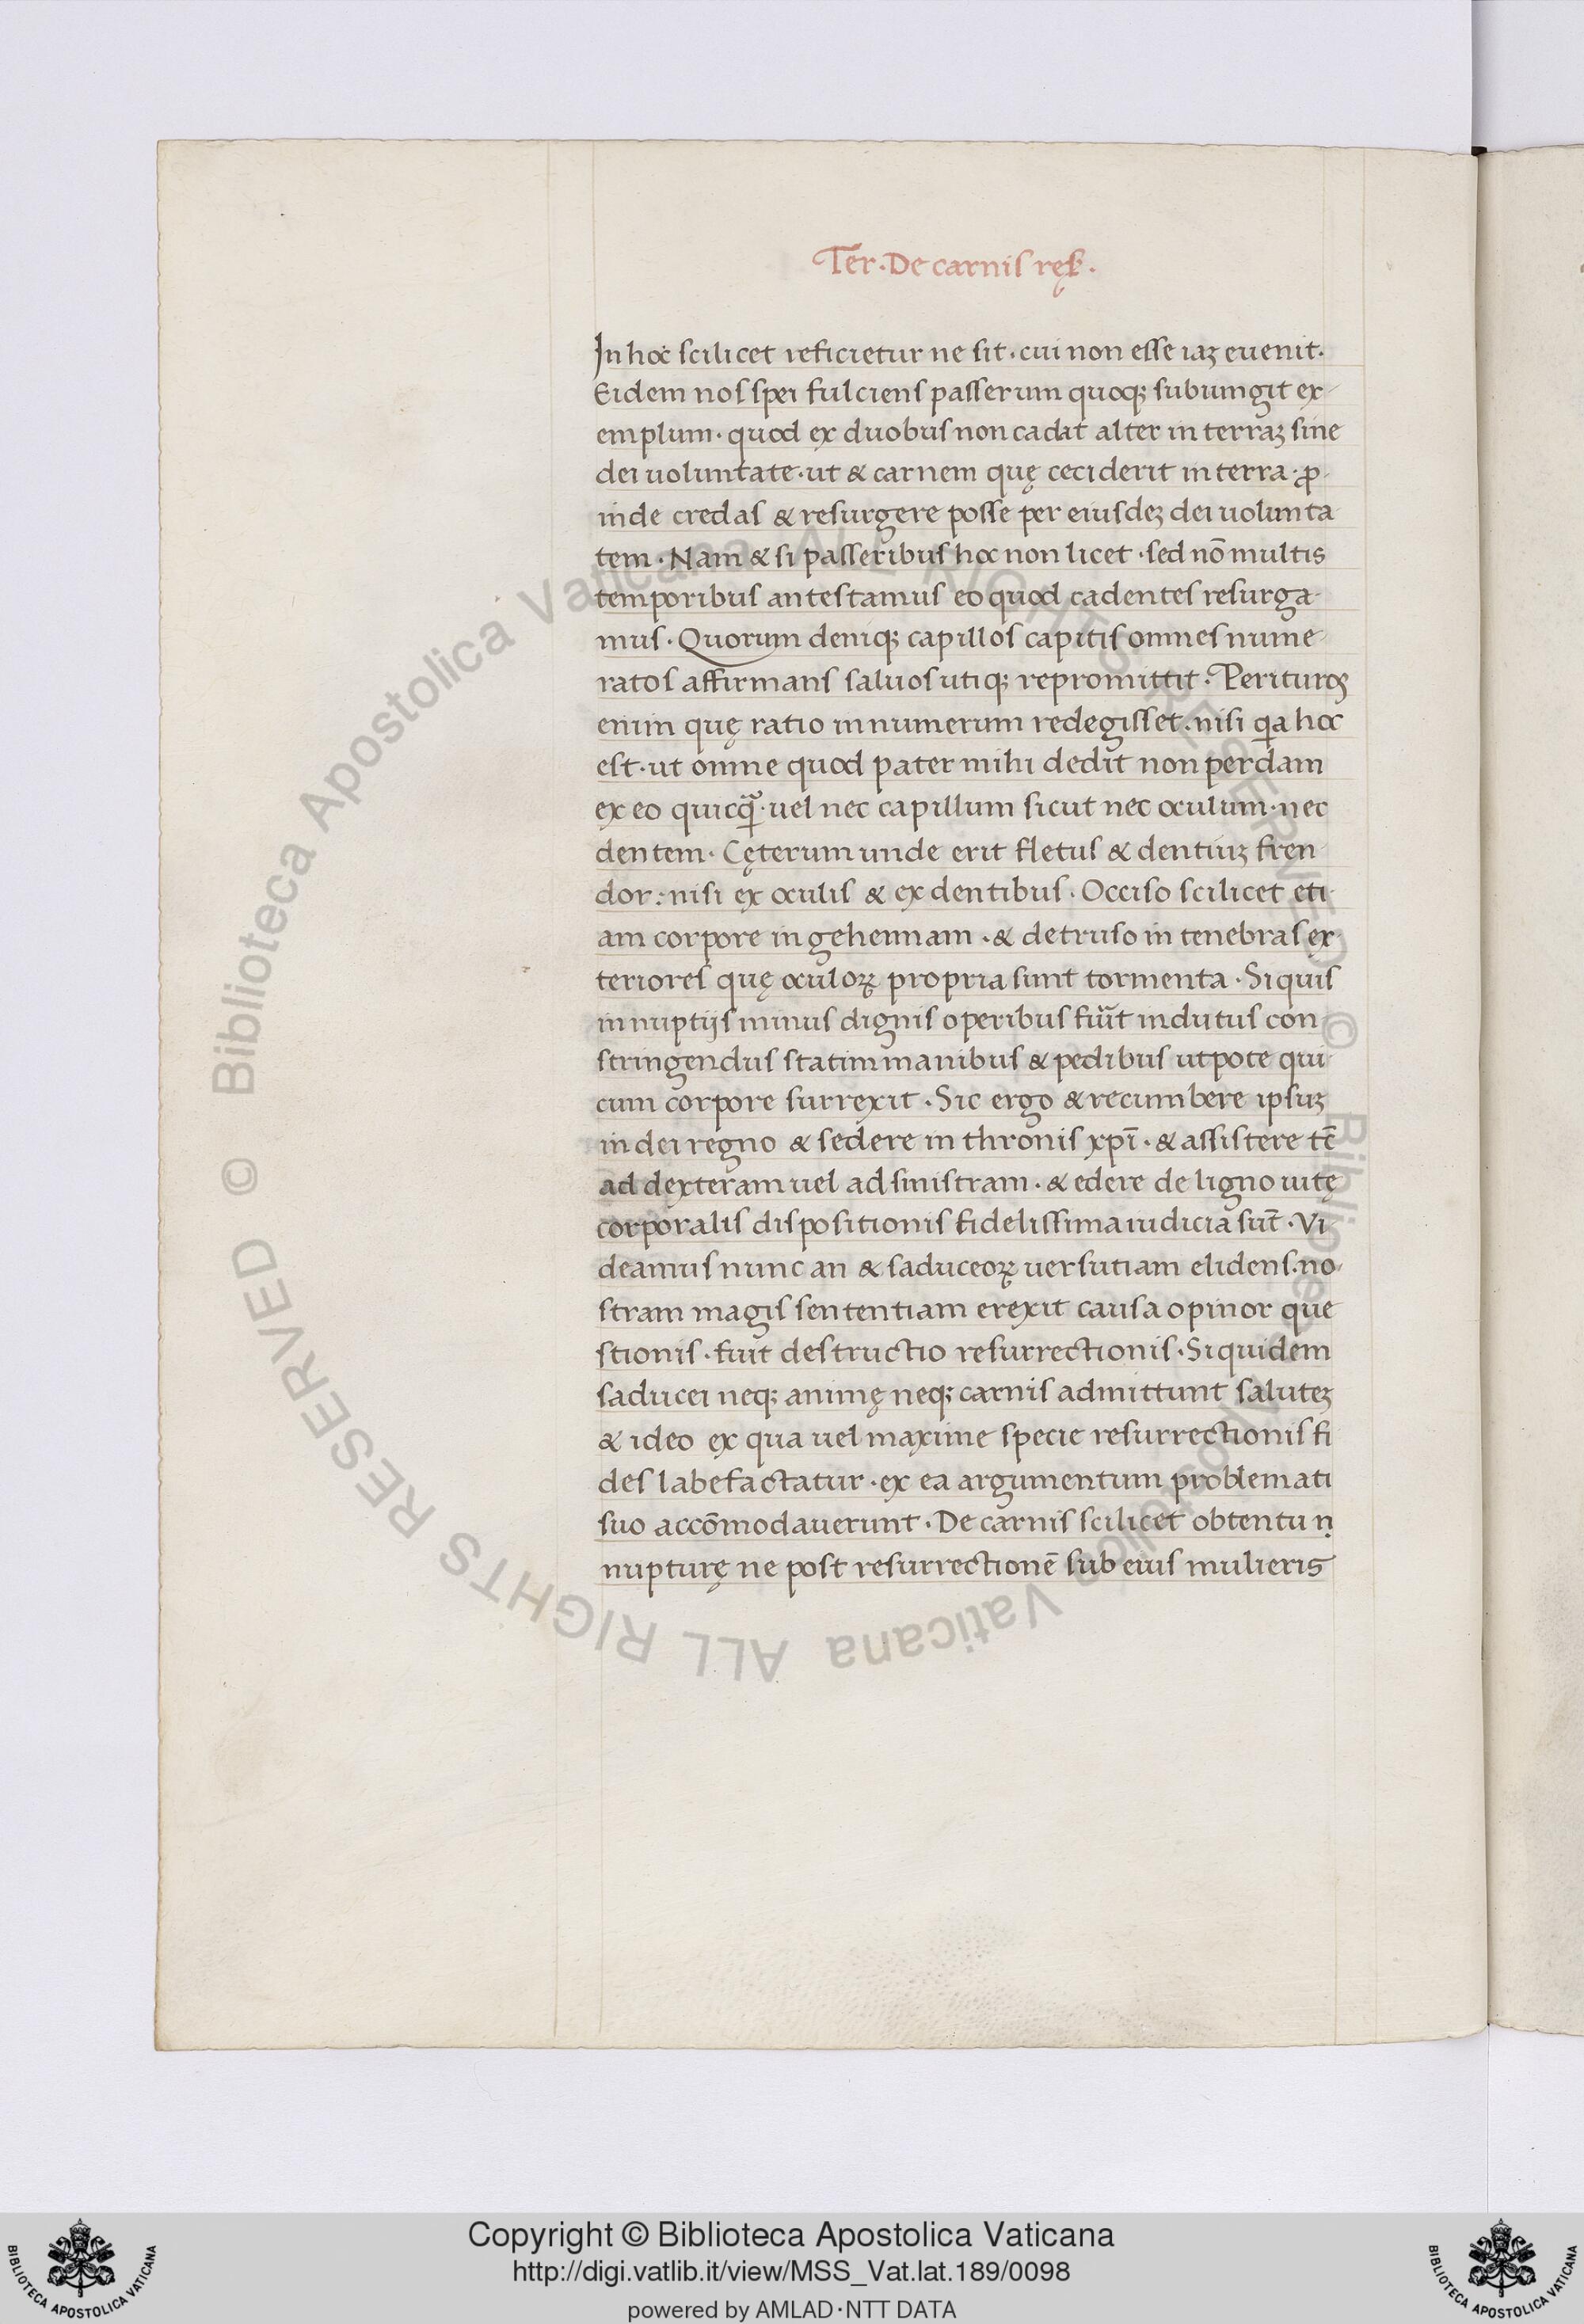 Ter. De carnis ręſ.
In hoc scilicet reficietur ne sit. cui non esse iaꝫ euenit.
Eidem nos spei fulciens passerum quoqꝫ subiungit ex
emplum. quod ex duobus non cadat alter in terraꝫ sine
dei uoluntate. ut & carnem quę ceciderit in terra. ꝓ
inde credas & resurgere posse per eiusdeꝫ dei uolunta
tem. Nam & si passeribus hoc non licet. sed nō multis
temporibus antestamus eo quod cadentes resurga
mus. Quorum deniqꝫ capillos capitis omnes nume
ratos affirmans saluos utiqꝫ repromittit. Perituros
enim quę ratio in numerum redegisset. nisi qa hoc
est. ut omne quod pater mihi dedit non perdam
ex eo quicq̃. uel nec capillum sicut nec oculum. nec
dentem. Cęterum unde erit fletus & dentiuꝫ fren
dor: nisi ex oculis & ex dentibus. Occiso scilicet eti
am corpore in gehennam. & detruso in tenebras ex
teriores quę oculoꝝ propria sunt tormenta. Si quis
in nuptijs minus dignis operibus fuit̃ indutus con
stringendus statim manibus & pedibus utpote qui
cum corpore surrexit. Sic ergo & recumbere ipsuꝫ
in dei regno & sedere in thronis xpī. & assistere tē
ad dexteram uel ad sinistram. & edere de ligno uitę
corporalis dispositionis fidelissima iudicia sūt. Vi
deamus nunc an & saduceoꝝ uersutiam elidens. no
stram magis sententiam erexit causa opinor que
stionis. fuit destructio resurrectionis. Siquidem
saducei neqꝫ animę neqꝫ carnis admittunt saluteꝫ
& ideo ex qua uel maxime specie resurrectionis fi
des labefactatur. ex ea argumentum problemati
suo accōmodauerunt. De carnis scilicet obtentu ṇ
nupturę ne post resurrectionē sub eius mulieris
© Biblioteca Apostolica Vaticana ALL RIGHTS RESERVED
© Biblioteca Apostolica Vaticana ALL RIGHTS RESERVED
Copyright © Biblioteca Apostolica Vaticana
http://digi.vatlib.it/view/MSS_Vat.lat.189/0098
powered by AMLAD·NTT DATA
BIBLIOTECA APOSTOLICA VATICANA
BIBLIOTECA APOSTOLICA VATICANA